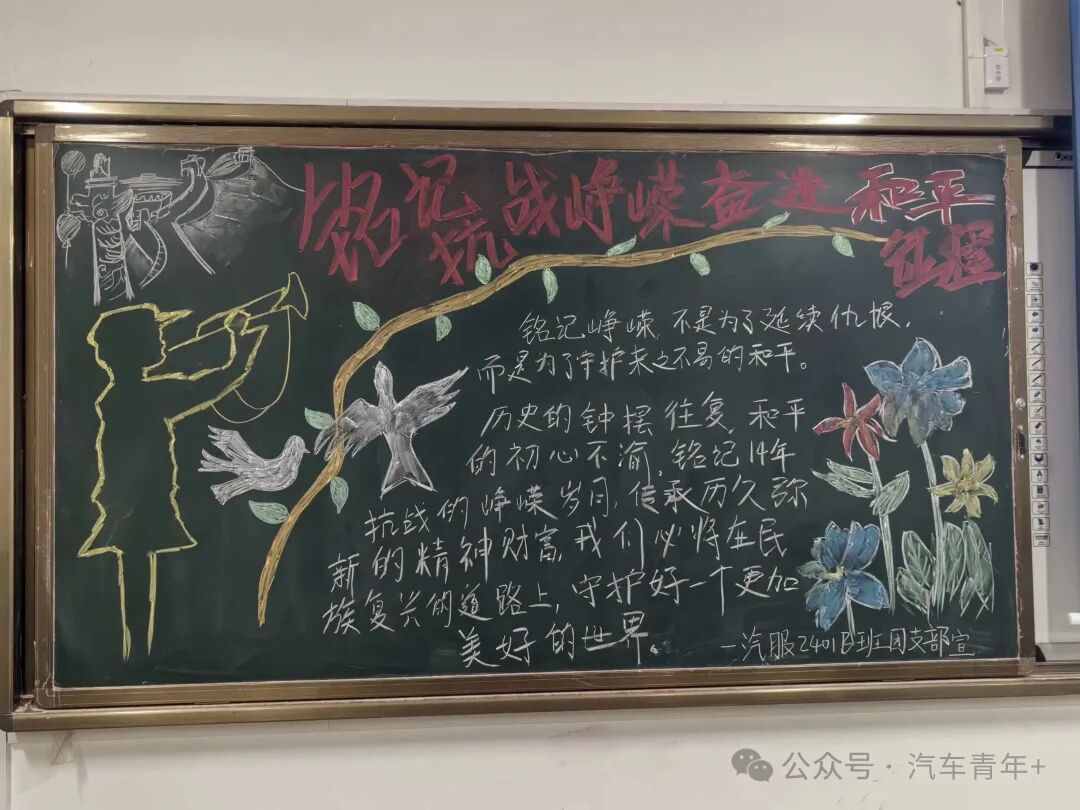 铭记抗战峥嵘奋进和平征程
铭记峥嵘,不是为了延续仇恨,
而是为了守护来之不易的和平。
历史的钟摆往复,和平
的初心不渝,铭记14年
抗战的峥嵘岁月,传承历久弥
新的精神财富,我们必将在民
族复兴的道路上,守护好一个更加
美好的世界。
一汽服2401B班团支部宣
公众号·汽车青年+